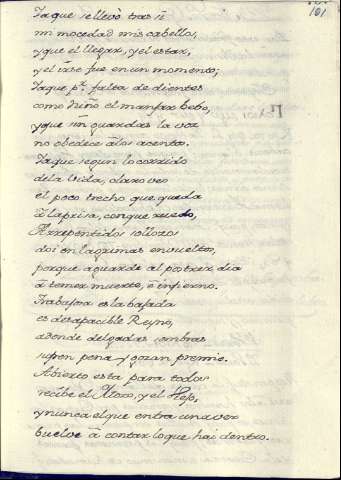 101
Ia que se llevò tras si
mi mocedad mis cabellos,
y que el llegar, y el estar,
y el irse fue en un momento;
Ia que pr. falta de dientes
como Niño el manjar bebo,
y que sin guardas la voz
no obedece à los acentos.
Ia que segun lo corrido
de la vida, claro veo
el poco trecho que queda
à la prisa, con que ruedo,
Arrepentidos sollozos
doi en lagrimas envueltos,
porque aguarde al postrer dia
à temer muerte, è infierno.
Trabajosa es la bajada
es desapacible Reyno,
adonde delgadas sombras
sufren pena y gozan premio.
Abierto esta para todos
recibe el Mozo, y el Viejo,
y nunca el que entra una vez
buelve à contar lo que hai dentro.